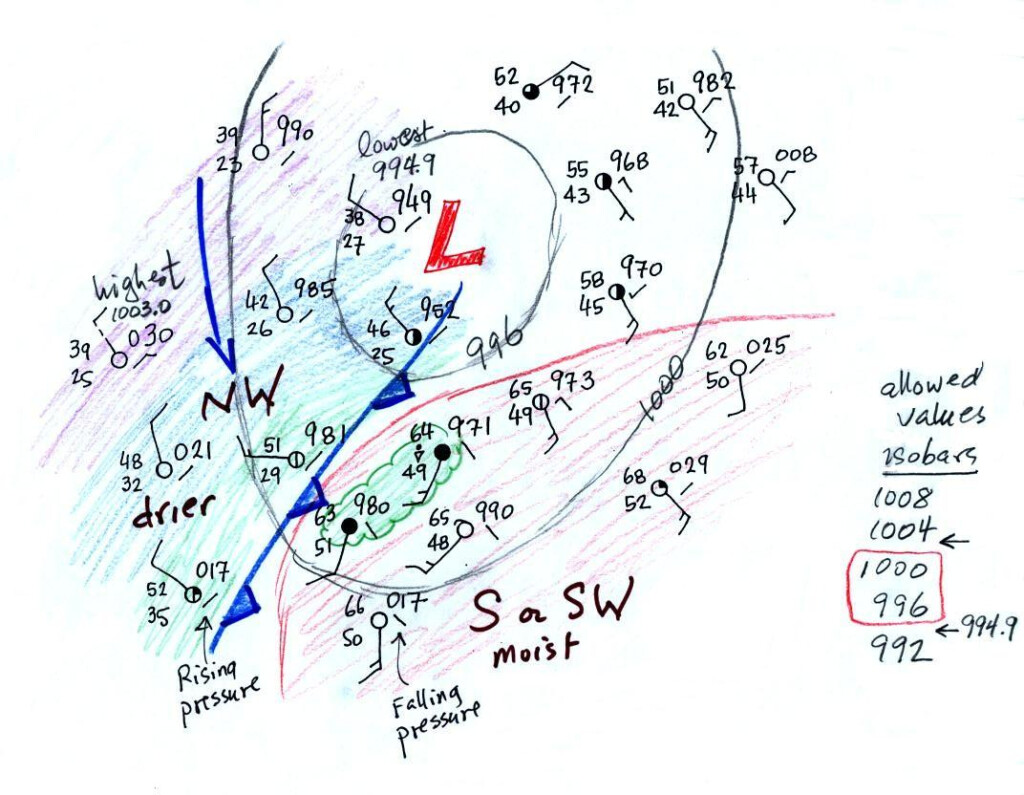 52
972
40
51
982
42
39
990
23
lowest
994.9
38
949
27
L
55
968
43
57
008
44
highest
1003.0
39
030
25
42
985
26
46
952
25
996
58
970
45
62
025
50
NW
65
973
49
1000
48
021
32
drier
51
981
29
64
971
49
63
980
51
65
990
48
68
029
52
52
017
35
Rising
pressure
66
017
50
Falling
pressure
S or SW
moist
allowed
values
isobars
1008
1004 ←
1000
996
← 994.9
992